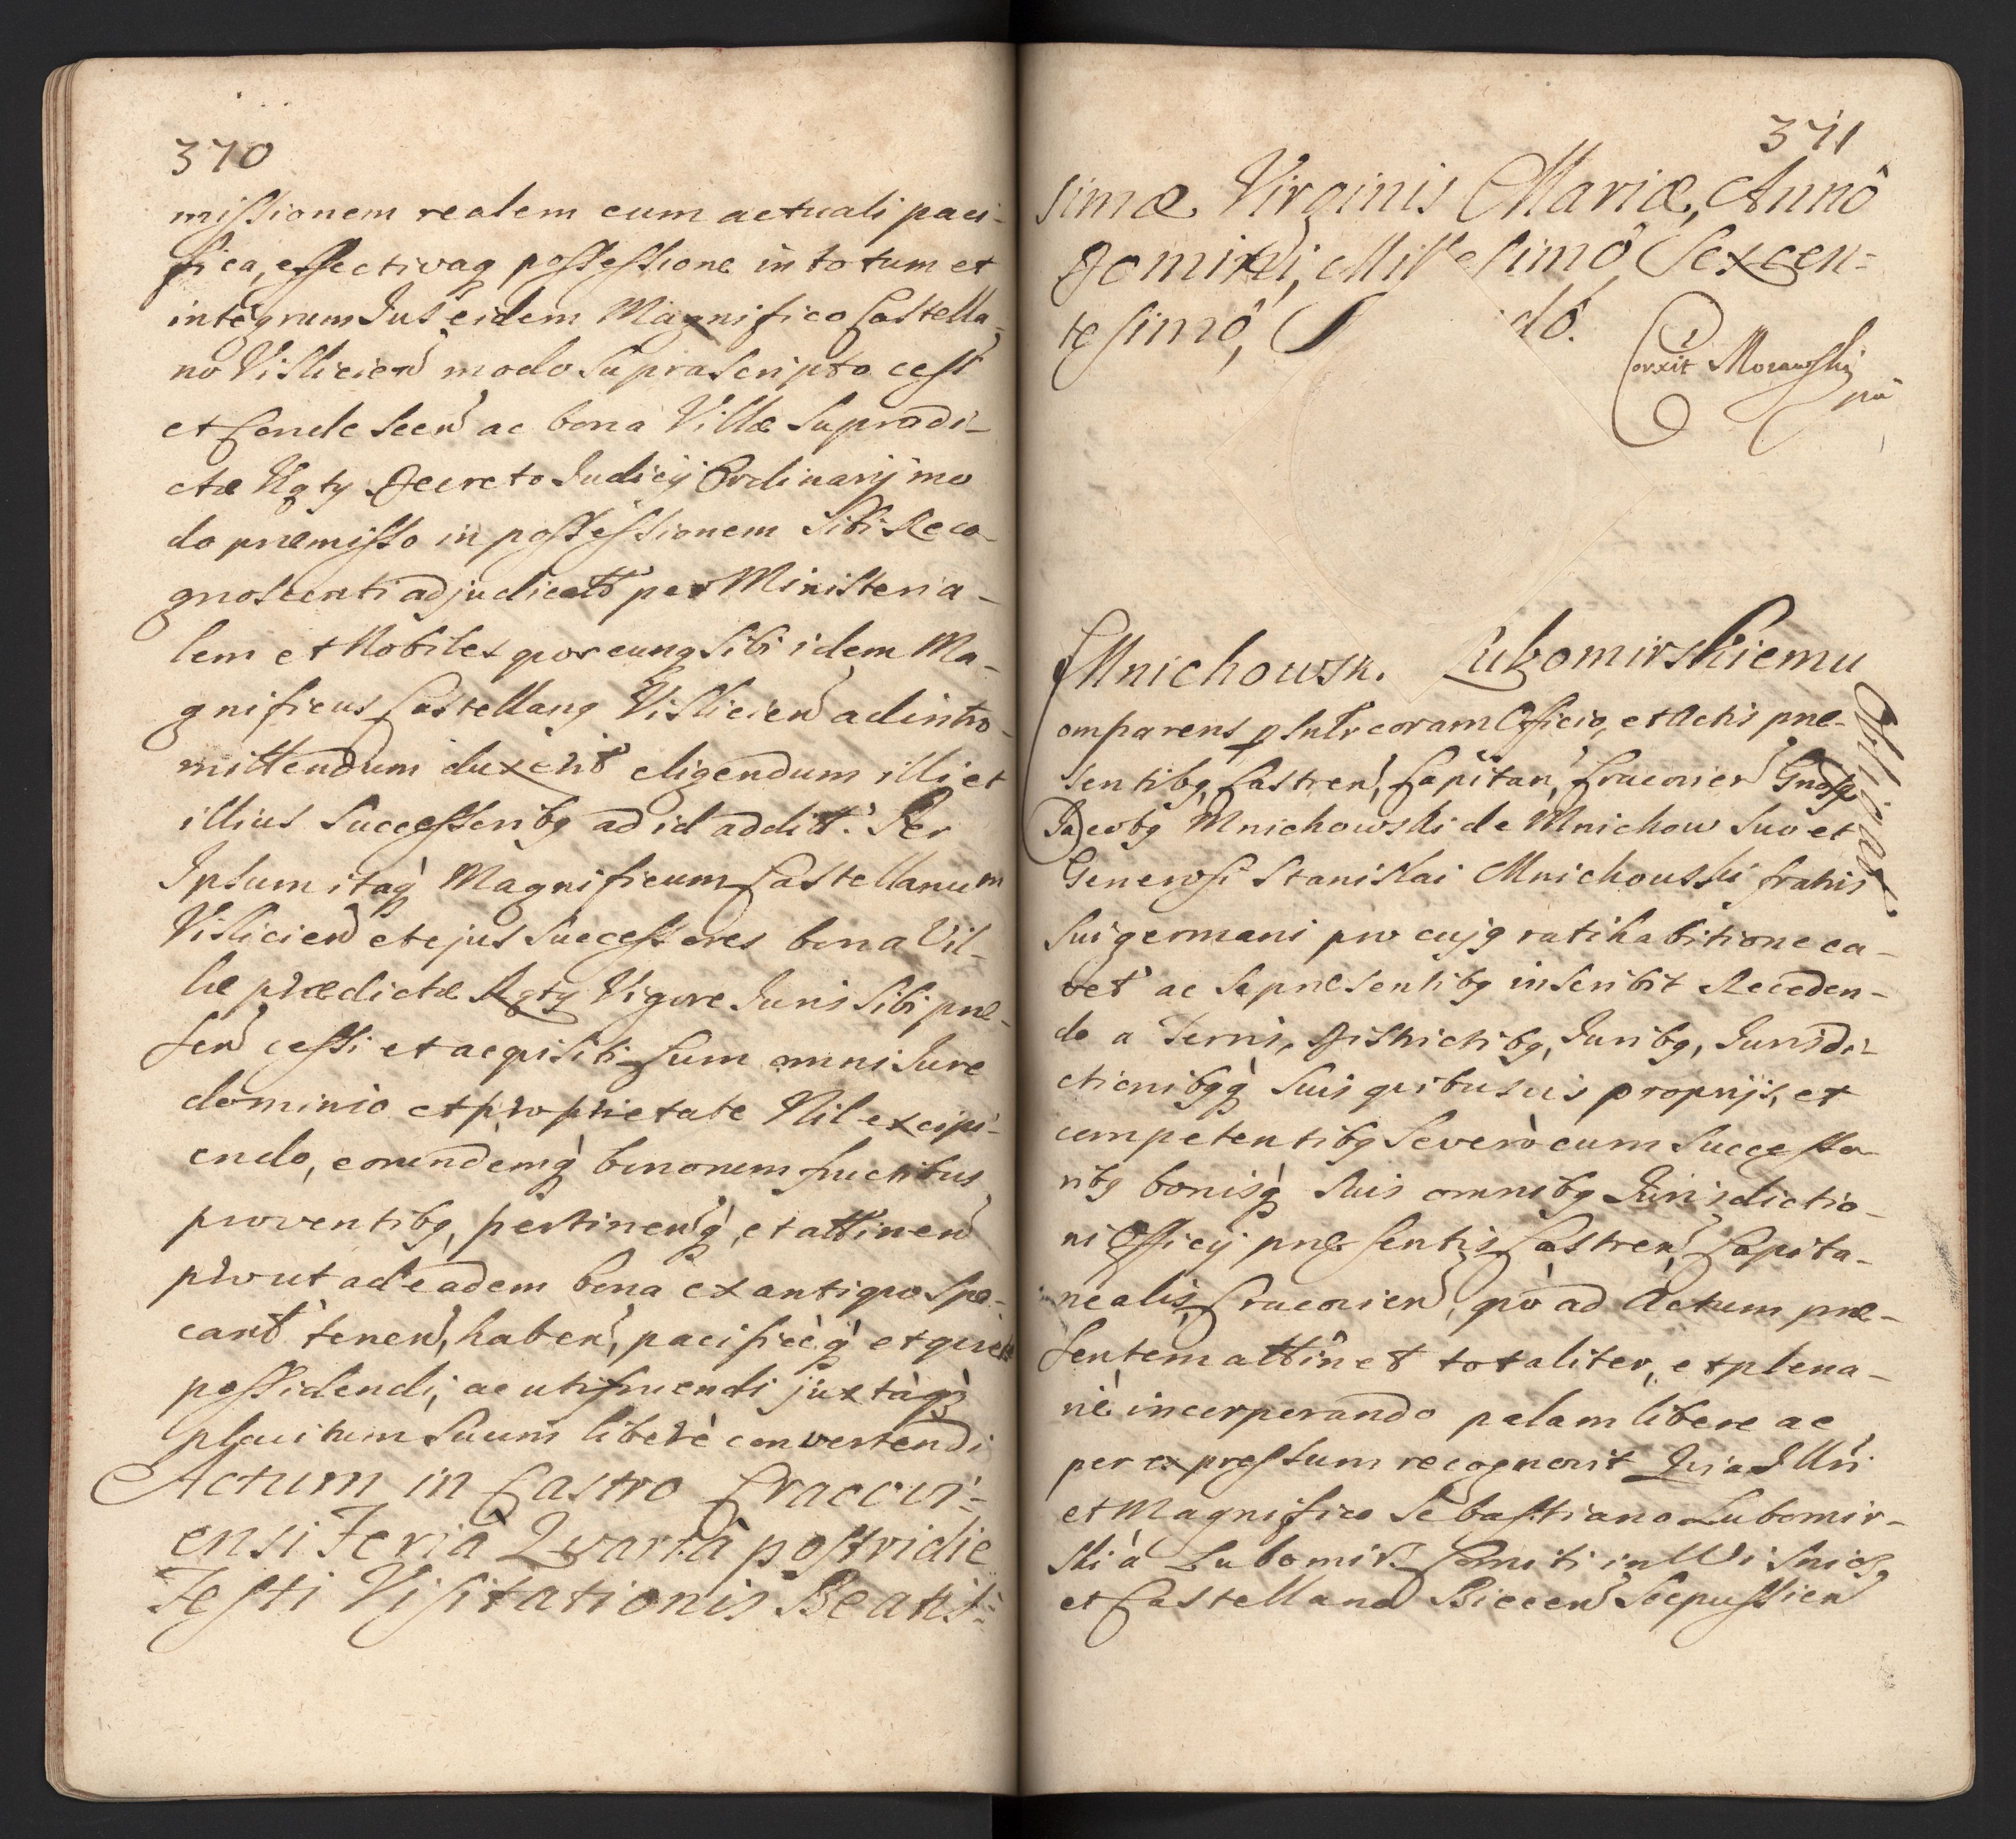 370
missionem realem cum actuali paci-
fica, effectivaq possessione in totum et
integrum Jus eidem Magnifico Castella-
no Vislicien modo suprascripto cess
et Condescen ac bona Villæ Supradi-
ctæ Kąty Decreto Judicij Ordinarij mo
do præmisso in possessionem Sibi Reco-
gnoscenti adjudicat per Ministeria-
lem et Nobiles quoscunq Sibi idem Ma-
gnificus Castellanq Vislicien ad intro-
mittendum duxerit eligendum illi et
illius Successoribq ad id addit. Per
Ipsum itaq Magnificum Castellanum
Vislicien et ejus Successores bona Vil-
læ prædictæ Kąty Vigore Juris Sibi præ-
sen cessi et acquisiti Cum omni Jure
dominio et proprietate Nil excipi-
endo, eorundemq bonorum fructibus
proventibq, pertinenq, et attinen
prout ad eadem bona ex antiquo spe-
cant tenen, haben, pacificè q et quiete
possidendi, ac utifruendi juxtàq
placitum Suum liberè convertendi
Actum in Castro Cracovi-
ensi Feria Qvarta postridie
Festi Visitationis Beatis-
371
simæ Virginis Mariæ, Annô
Domini, Millesimô, Sexcen=
tesimô, S dô.
Corxit Morawski
pp
Mnichowsk. Lubomirskiemu
Obligat.
Comparens psnlr coram Officio, et Actis præ-
sentibq, Castren, Capitan, Cracovien Gnosq
Jacobq Mnichowski de Mnichow Suo et
Generosi Stanislai Mnichowski fratris
Sui germani pro cujq ratihabitione ca-
vet ac Se præsentibq inscribit Receden-
do a Terris, Districtibq, Juribq, Jurisdi-
ctionibqq Suis quibusvis proprijs, et
competentibq Severò cum Successo-
ribq bonisq Suis omnibq Jurisdictio-
ni Officij præsentis Castren, Capita-
nealis Cracovien, quò ad Actum præ-
sentem attinet totaliter, et plena-
riè incorporando palam libere ac
per expressum recognovit Quia Illri
et Magnifico Sebastiano Lubomir-
ski à Lubomirz Comiti in Wisnicz
et Castellano Biecen Scepussien